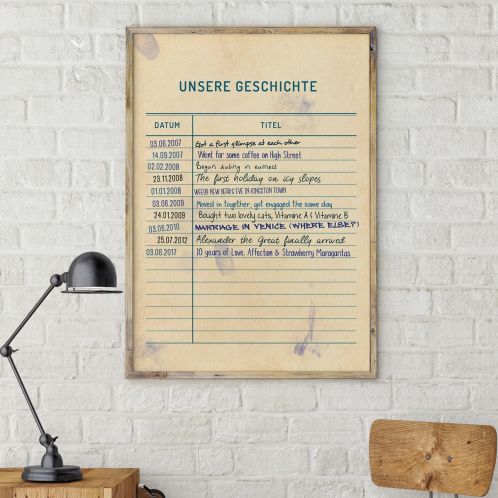 UNSERE GESCHICHTE
DATUM TITEL
03.06.2007 Got a first glimpse at each other
14.09.2007 Went for some coffee on High Street
02.02.2008 Began dating in earnest
23.11.2008 The first holiday on icy slopes
01.01.2008 WEEDY NEW YEARS EVE IN KINGSTON TOWN
03.06.2009 Moved in together, got engaged the same day
24.01.2009 Bought two lovely cats, Vitamine A & Vitamine B
03.06.2010 MARRIAGE IN VENICE (WHERE ELSE?)
25.07.2012 Alexander the Great finally arrived
03.06.2017 10 years of Love, Affection & Strawberry Maragaritas